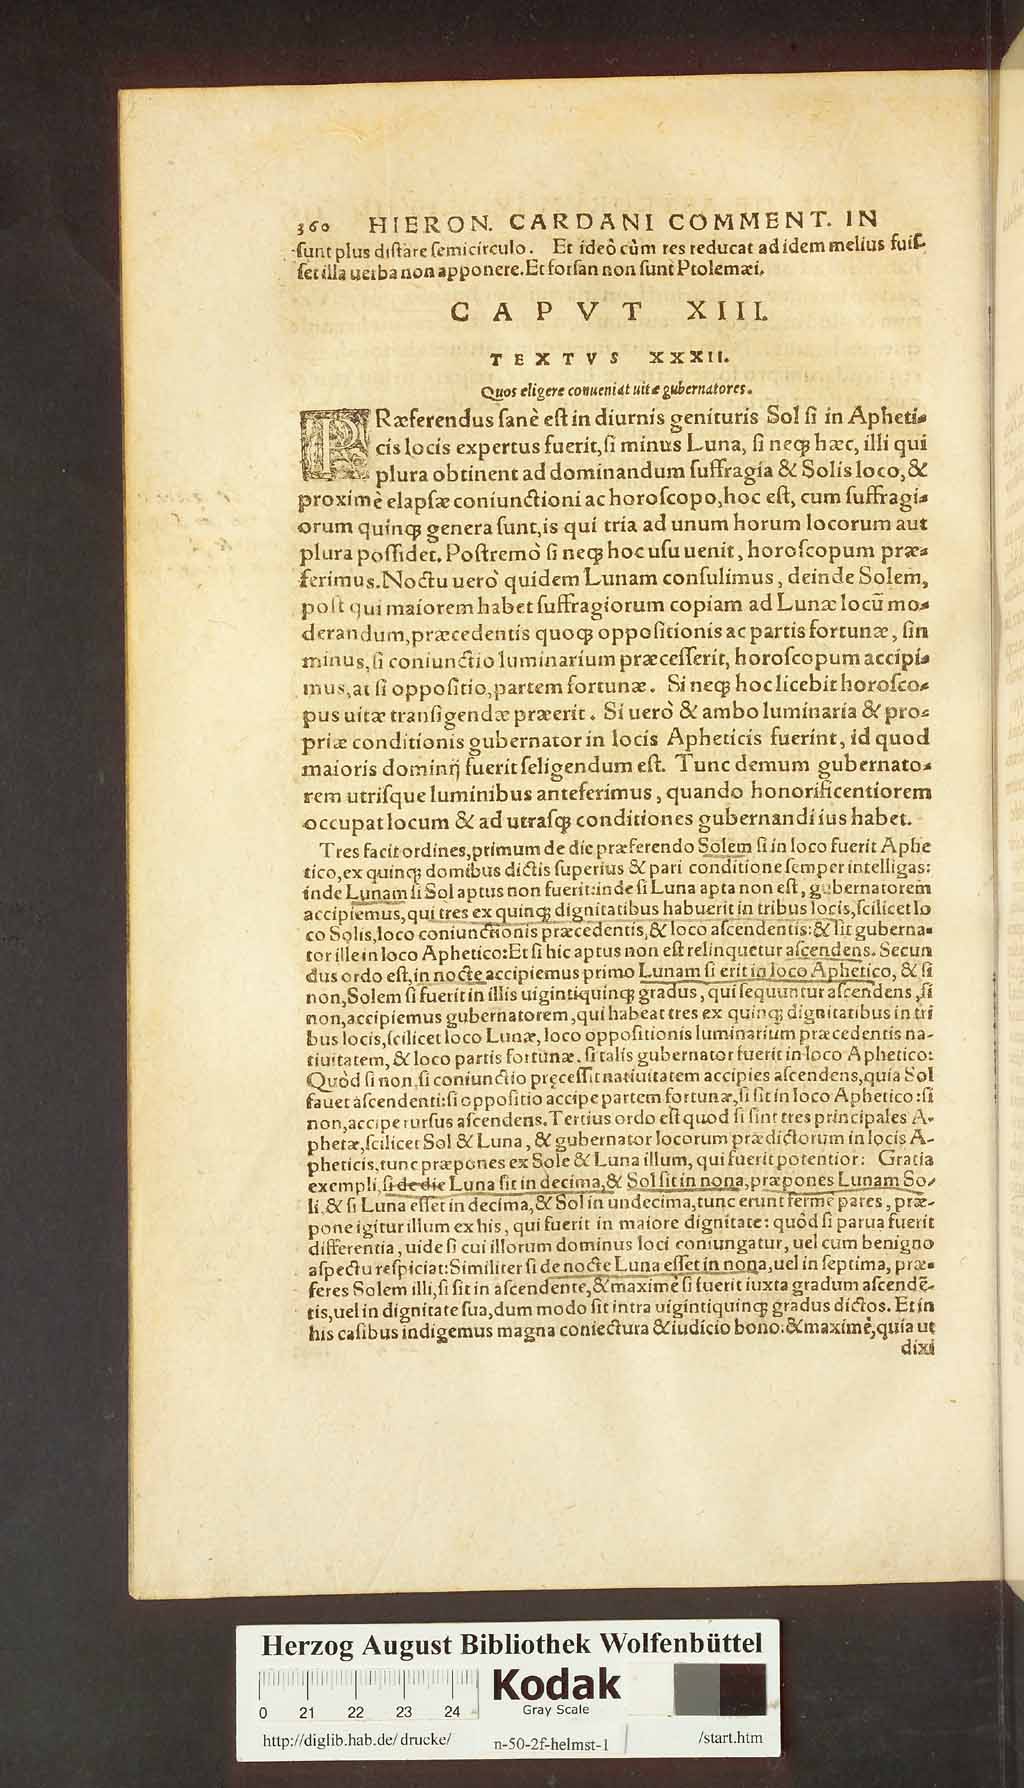 360 HIERON. CARDANI COMMENT. IN
sunt plus distare semicirculo. Et ideò cùm res reducat ad idem melius fuiſ-
ſet illa uerba non apponere. Et forſan non ſunt Ptolemæi.
CAPVT XIII.
TEXTVS XXXII.
Quos eligere conueniat uitæ gubernatores.
PRæferendus ſanè eſt in diurnis genituris Sol ſi in Apheti-
cis locis expertus fuerit, ſi minus Luna, ſi neqꝫ hæc, illi qui
plura obtinent ad dominandum ſuffragia & Solis loco, &
proximè elapſæ coniunctioni ac horoſcopo, hoc eſt, cum ſuffragi-
orum quinqꝫ genera ſunt, is qui tria ad unum horum locorum aut
plura poſſidet. Poſtremò ſi neqꝫ hoc uſu uenit, horoſcopum præ-
ferimus. Noctu uerò quidem Lunam conſulimus, deinde Solem,
poſt qui maiorem habet ſuffragiorum copiam ad Lunæ locũ mo-
derandum, præcedentis quoqꝫ oppoſitionis ac partis fortunæ, ſin
minus, ſi coniunctio luminarium præceſſerit, horoſcopum accipi-
mus, at ſi oppoſitio, partem fortunæ. Si neqꝫ hoc licebit horoſco-
pus uitæ tranſigendæ præerit. Si uerò & ambo luminaria & pro-
priæ conditionis gubernator in locis Apheticis fuerint, id quod
maioris dominij fuerit ſeligendum eſt. Tunc demum gubernato-
rem utriſque luminibus anteferimus, quando honorificentiorem
occupat locum & ad utraſqꝫ conditiones gubernandi ius habet.
Tres facit ordines, primum de die præferendo Solem ſi in loco fuerit Aphe
tico, ex quinqꝫ domibus dictis ſuperius & pari conditione ſemper intelligas:
inde Lunam ſi Sol aptus non fuerit: inde ſi Luna apta non eſt, gubernatorem
accipiemus, qui tres ex quinqꝫ dignitatibus habuerit in tribus locis, ſcilicet lo
co Solis, loco coniunctionis præcedentis, & loco aſcendentis: & ſit guberna-
tor ille in loco Aphetico: Et ſi hic aptus non eſt relinquetur aſcendens. Secun
dus ordo eſt, in nocte accipiemus primo Lunam ſi erit in loco Aphetico, & ſi
non, Solem ſi fuerit in illis uigintiquinqꝫ gradus, qui ſequuntur aſcendens, ſi
non, accipiemus gubernatorem, qui habeat tres ex quinqꝫ dignitatibus in tri
bus locis, ſcilicet loco Lunæ, loco oppoſitionis luminarium præcedentis na-
tiuitatem, & loco partis fortunæ. ſi talis gubernator fuerit in loco Aphetico:
Quòd ſi non, ſi coniunctio pręceſſit natiuitatem accipies aſcendens, quia Sol
fauet aſcendenti: ſi oppoſitio accipe partem fortunæ, ſi ſit in loco Aphetico: ſi
non, accipe rurſus aſcendens. Tertius ordo eſt quod ſi ſint tres principales A-
phetæ, ſcilicet Sol & Luna, & gubernator locorum prædictorum in locis A-
pheticis, tunc præpones ex Sole & Luna illum, qui fuerit potentior: Gratia
exempli, ſi de die Luna ſit in decima, & Sol ſit in nona, præpones Lunam So-
li, & ſi Luna eſſet in decima, & Sol in undecima, tunc erunt fermè pares, præ-
pone igitur illum ex his, qui fuerit in maiore dignitate: quòd ſi parua fuerit
differentia, uide ſi cui illorum dominus loci coniungatur, uel cum benigno
aſpectu reſpiciat: Similiter ſi de nocte Luna eſſet in nona, uel in ſeptima, præ-
feres Solem illi, ſi ſit in aſcendente, & maximè ſi fuerit iuxta gradum aſcendẽ-
tis, uel in dignitate ſua, dum modo ſit intra uigintiquinqꝫ gradus dictos. Et in
his caſibus indigemus magna coniectura & iudicio bono: & maximè, quia ut
dixi
Herzog August Bibliothek Wolfenbüttel
Kodak
Gray Scale
0 21 22 23 24
http://diglib.hab.de/drucke/ n-50-2f-helmst-1 /start.htm